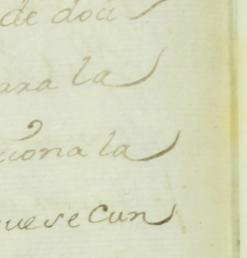 de doci
ara la
ciona la
uese Cun